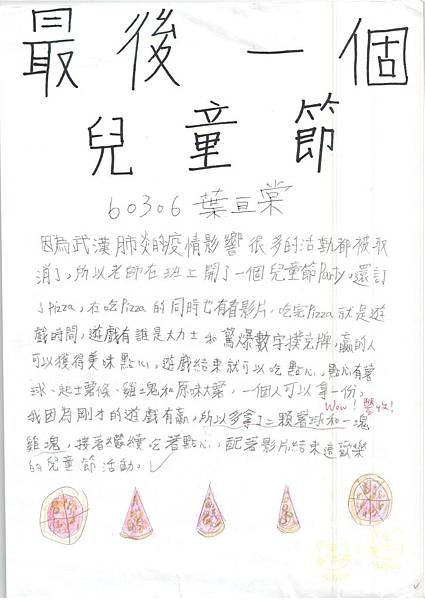 最後一個
兒童節
60306 葉亘棠
因為武漢肺炎的疫情影響很多的活動都被取
消了,所以老師在班上開了一個兒童節Party,還訂
了Pizza,在吃Pizza的同時也有看影片,吃完Pizza就是遊
戲時間,遊戲有誰是大力士和驚爆數字撲克牌,贏的人
可以獲得美味點心,遊戲結束就可以吃點心,點心有薯
球、起士薯條、雞塊和原味大薯,一個人可以拿一份,
Wow!
我因為剛才的遊戲有贏,所以多拿了二顆薯球和一塊
雞塊,接著繼續吃著點心,配著影片結束這歡樂
的兒童節活動。